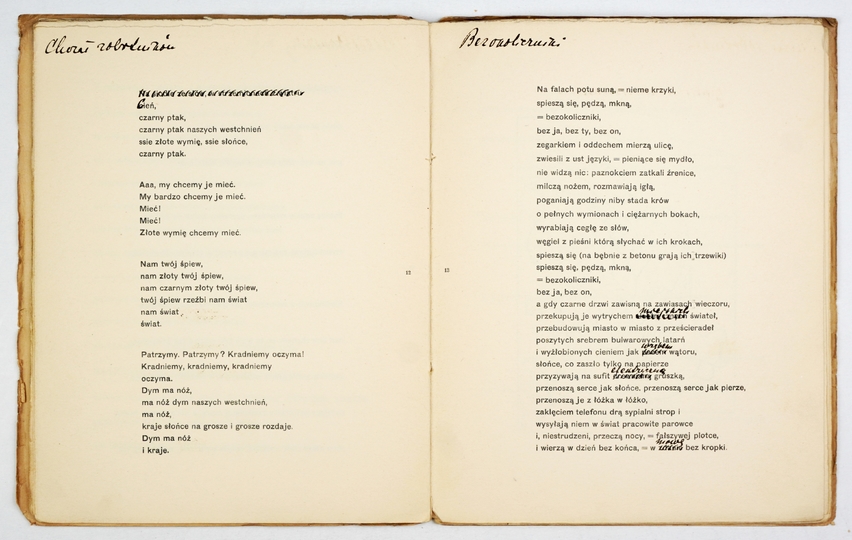 Chorał robotników
Cień,
czarny ptak,
czarny ptak naszych westchnień
ssie złote wymię, ssie słońce,
czarny ptak.
Aaa, my chcemy je mieć.
My bardzo chcemy je mieć.
Mieć!
Mieć!
Złote wymię chcemy mieć.
Nam twój śpiew,
nam złoty twój śpiew,
nam czarnym złoty twój śpiew,
twój śpiew rzeźbi nam świat
nam świat
świat.
Patrzymy. Patrzymy? Kradniemy oczyma!
Kradniemy, kradniemy, kradniemy
oczyma.
Dym ma nóż,
ma nóż dym naszych westchnień,
ma nóż,
kraje słońce na grosze i grosze rozdaje.
Dym ma nóż
i kraje.
12
Bezokoliczniki
Na falach potu suną, = nieme krzyki,
spieszą się, pędzą, mkną,
= bezokoliczniki,
bez ja, bez ty, bez on,
zegarkiem i oddechem mierzą ulicę,
zwiesili z ust języki, = pieniące się mydło,
nie widzą nic: paznokciem zatkali źrenice,
milczą nożem, rozmawiają igłą,
poganiają godziny niby stada krów
o pełnych wymionach i ciężarnych bokach,
wyrabiają cegłę ze słów,
węgiel z pieśni którą słychać w ich krokach,
spieszą się (na bębnie z betonu grają ich trzewiki)
spieszą się, pędzą, mkną,
= bezokoliczniki,
bez ja, bez on,
a gdy czarne drzwi zawisną na zawiasach wieczoru,
przekupują je wytrychem świateł,
przebudowują miasto w miasto z prześcieradeł
poszytych srebrem bulwarowych latarń
i wyżłobionych cieniem jak wątoru,
słońce, co zaszło tylko na papierze
przyzywają na sufit elektryczną gruszką,
przenoszą serce jak słońce. przenoszą serce jak pierze,
przenoszą je z łóżka w łóżko,
zaklęciem telefonu drą sypialni strop i
wysyłają niem w świat pracowite parowce
i, niestrudzeni, przeczą nocy, = fałszywej plotce,
i wierzą w dzień bez końca, = w mowę bez kropki.
13